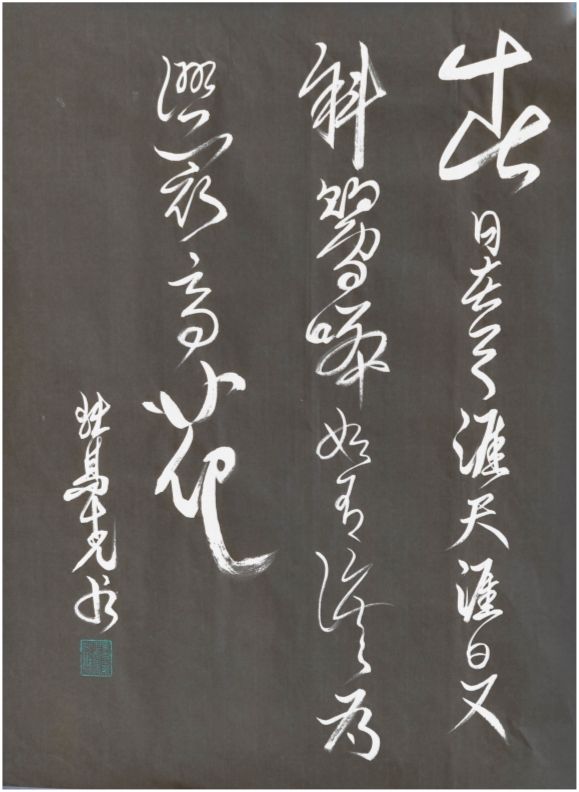 春日在天涯天涯日又
斜鶯啼如有淚為
濕最高花